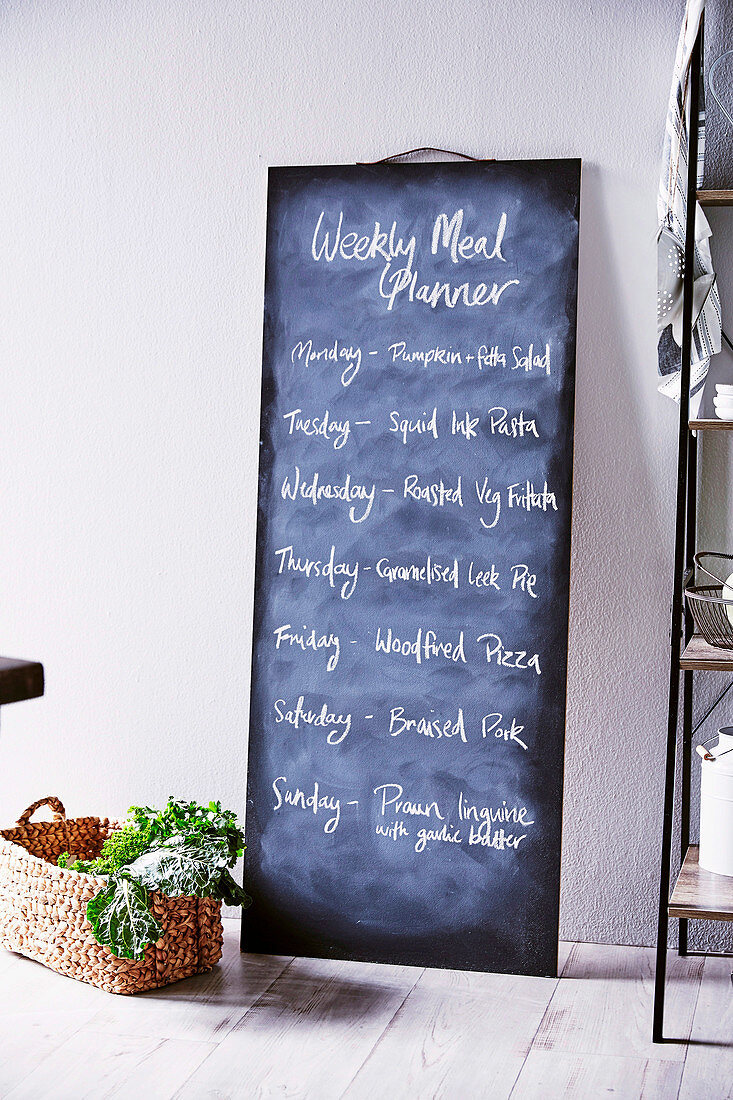 Weekly Meal
Planner
Monday - Pumpkin + fetta Salad
Tuesday - Squid Ink Pasta
Wednesday - Roasted Veg Frittata
Thursday - Caramelised Leek Pie
Friday - Woodfired Pizza
Saturday - Braised Pork
Sunday - Prawn linguine
with garlic butter